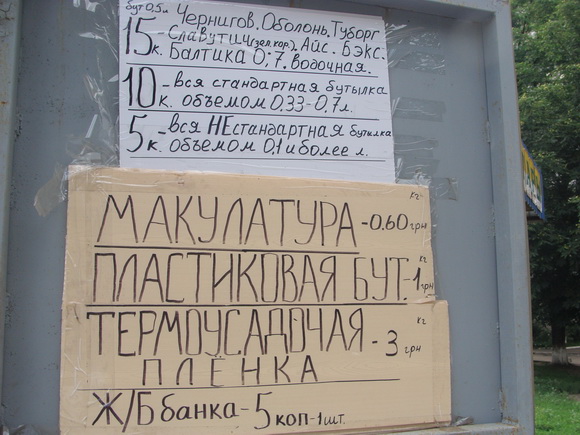 бут 0,5 л Чернигов, Оболонь, Туборг
15 к. Славутич (зел. кар.), Айс. Бэкс.
Балтика 0; 7. водочная.
10 к. - вся стандартная бутылка
объемом 0,33-0,7 л.
5 к. - вся НЕстандартная бутилка
объемом 0,1 и более л.
МАКУЛАТУРА - 0,60 грн кг
ПЛАСТИКОВАЯ БУТ. - 1 грн кг
ТЕРМОУСАДОЧАЯ - 3 грн кг
ПЛЁНКА
Ж/Б банка - 5 коп - 1 шт.